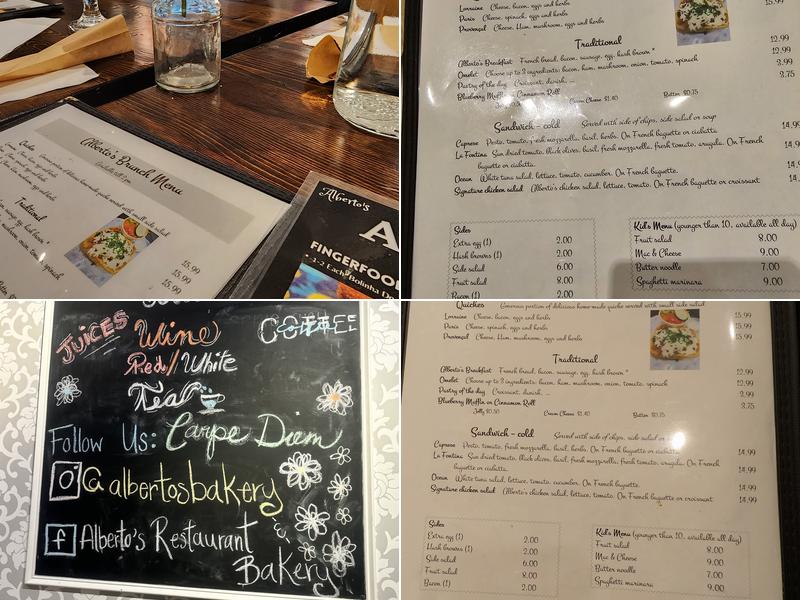 Alberto's Brunch Menu
Quiches
Traditional
15.99
15.99
15.99
Alberto's
A
FINGERFOO
Lorraine Cheese, bacon, eggs and herbs
Paris Cheese, spinach, eggs and herbs
Provençal Cheese, Ham, mushroom, eggs and herbs
15.99
Traditional
Alberto's Breakfast French bread, bacon, sausage, egg, hash brown * 12.99
Omelet Choose up to 3 ingredients: bacon, ham, mushroom, onion, tomato, spinach 12.99
Pastry of the day Croissant, danish, ... 2.99
Blueberry Muffin or Cinnamon Roll 3.75
Cream Cheese $1.40 Butter $0.75
Sandwich - cold Served with side of chips, side salad or soup
Caprese Pesto, tomato, fresh mozzarella, basil, herbs. On French baguette or ciabatta 14.99
La Fontina Sun dried tomato, black olives, basil, fresh mozzarella, fresh tomato, arugula. On French
baguette or ciabatta. 14.99
Ocean White tuna salad, lettuce, tomato, cucumber. On French baguette.
Signature chicken salad Alberto's chicken salad, lettuce, tomato. On French baguette or croissant
Sides
Extra egg (1) 2.00
Hash browns (1) 2.00
Side salad 6.00
Fruit salad 8.00
Bacon (1) 2.00
Kid's Menu (younger than 10, available all day)
Fruit salad 8.00
Mac & Cheese 9.00
Butter noodle 7.00
Spaghetti marinara 9.00
JUICES Wine COFFEE
Red/White
Tea
Follow Us: Carpe Diem
@albertosbakery
f Alberto's Restaurant
&
Bakery
Quiches Generous portion of delicious home-made quiche served with small side salad
Lorraine Cheese, bacon, eggs and herbs 15.99
Paris Cheese, spinach, eggs and herbs 15.99
Provençal Cheese, Ham, mushroom, eggs and herbs 15.99
Traditional
Alberto's Breakfast French bread, bacon, sausage, egg, hash brown * 12.99
Omelet Choose up to 3 ingredients: bacon, ham, mushroom, onion, tomato, spinach 12.99
Pastry of the day Croissant, danish, ... 2.99
Blueberry Muffin or Cinnamon Roll 3.75
Jelly $0.50 Cream Cheese $1.40 Butter $0.75
Sandwich - cold Served with side of chips, side salad or
Caprese Pesto, tomato, fresh mozzarella, basil, herbs. On French baguette or ciabatta 14.99
La Fontina Sun dried tomato, black olives, basil, fresh mozzarella, fresh tomato, arugula. On French
baguette or ciabatta. 14.99
Ocean White tuna salad, lettuce, tomato, cucumber. On French baguette. 14.99
Signature chicken salad Alberto's chicken salad, lettuce, tomato. On French baguette or croissant 14.99
Sides
Extra egg (1) 2.00
Hash browns (1) 2.00
Side salad 6.00
Fruit salad 8.00
Bacon (1) 2.00
Kid's Menu (younger than 10, available all day)
Fruit salad 8.00
Mac & Cheese 9.00
Butter noodle 7.00
Spaghetti marinara 9.00